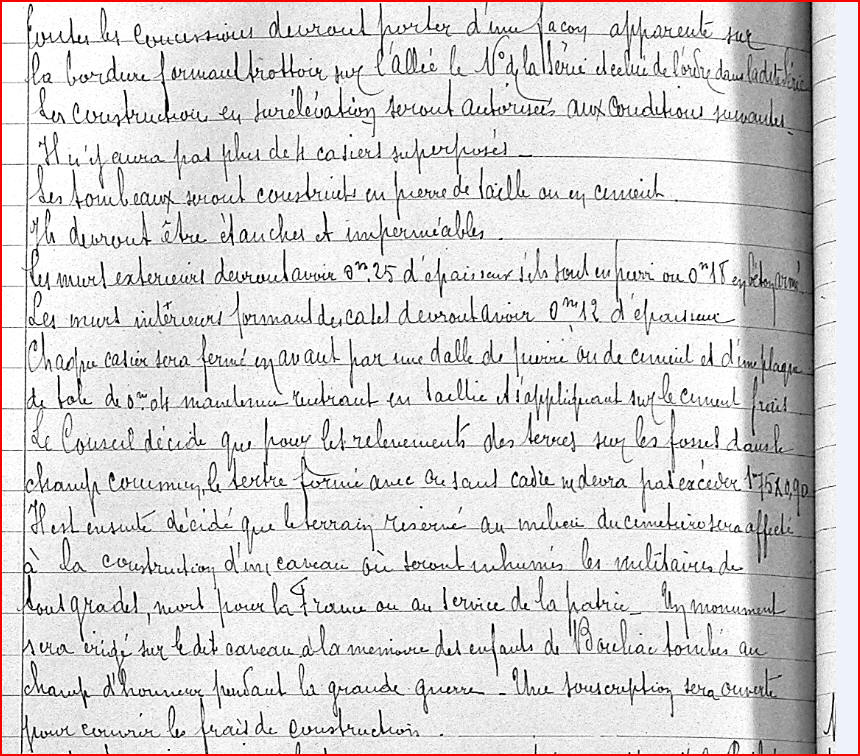 toutes les concessions devront porter d'une façon apparente sur
la bordure formant trottoir sur l'allée le N° de la série et celui de l'ordre dans la dite série
Les construction en surélévation seront autorisées aux conditions suivantes.
Il n'y aura pas plus de 4 casiers superposés.
Les tombeaux seront construits en pierre de taille ou en ciment.
Ils devront être étanches et imperméables.
Les murs exterieurs devront avoir 0m.25 d'épaisseur s'ils sont en pierre ou 0m18 en béton armé
Les murs intérieurs formant des cases devront avoir 0m12 d'épaisseur
Chaque casier sera fermé en avant par une dalle de pierre ou de ciment et d'une plaque
de tole de 0m.04 rentrant en saillie et s'appliquant sur le ciment frais
Le Conseil décide que pour les relevements des terres sur les fosses dans le
champ commun, le tertre formé avec ou sans cadre ne devra pas excéder 1m75 x 0,90
Il est ensuite décidé que le terrain réservé au milieu du cimetière sera affecté
à la construction d'un caveau où seront inhumés les militaires de
tous grades, morts pour la France ou au service de la patrie. Un monument
sera érigé sur le dit caveau à la memoire des enfants de Bouliac tombés au
champ d'honneur pendant la grande guerre. Une souscription sera ouverte
pour couvrir les frais de construction.